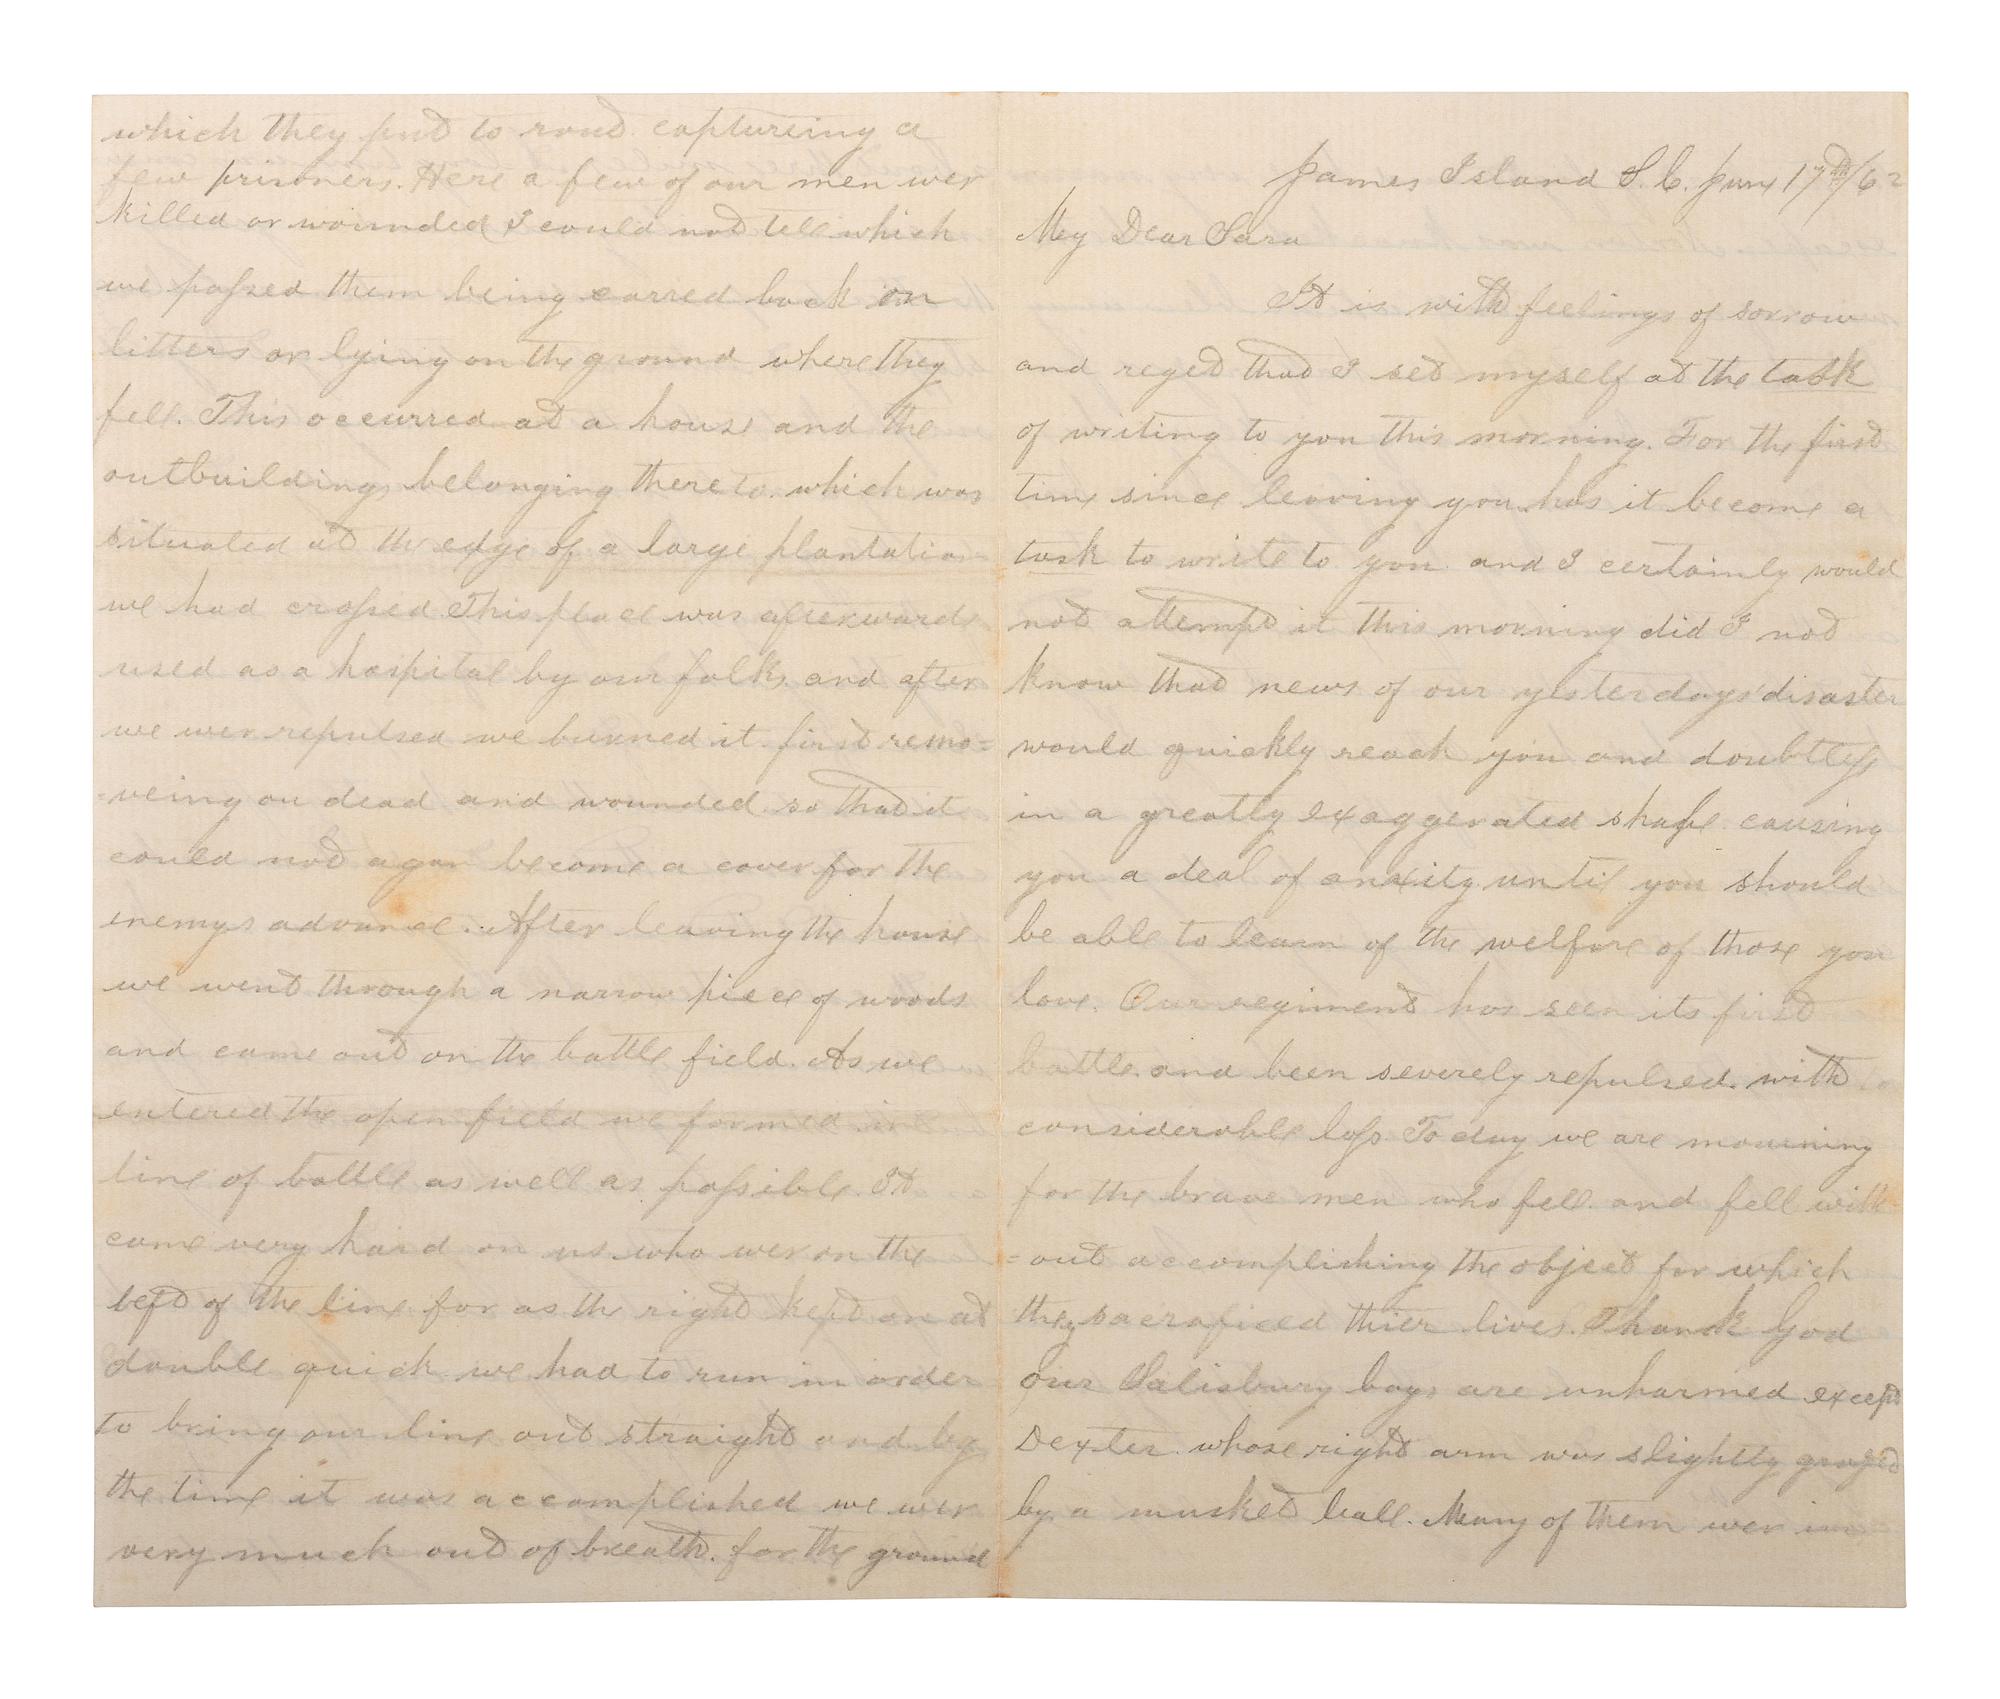 James Island S.C. June 17th/62
My Dear Sara
It is with feelings of sorrow
and reget that I set myself at the task
of writing to you this morning. For the first
time since leaving you has it become a
task to write to you and I certainly would
not attempt it this morning did I not
know that news of our yesterdays' disaster
would quickly reach you and doubtless
in a greatly exaggerated shape causing
you a deal of anxity until you should
be able to learn of the welfare of those you
love. Our regiment has seen its first
battle and been severely repulsed. with
considerable loss To day we are mourning
for the brave men who fell and fell with
=out accomplishing the object for which
they sacraficed thier lives. Thank God
our Salisbury boys are unharmed except
Dexter whose right arm was slightly grazed
by a musket ball. Many of them wer in
which they put to rout captureing a
few prisoners. Here a few of our men wer
killed or wounded I could not tell which
we passed them being carred back on
litters or lying on the ground where they
fell. This occurred at a house and the
outbuildings belonging thereto. which was
situated at the edge of a large plantation
we had crossed This place was afterwards
used as a hospital by our folks and after
we wer repulsed we burned it first remo=
=veing ou dead and wounded so that it
could not agan become a cover for the
enemys advance. After leaving the house
we went through a narrow piece of woods
and came out on the battle field. As we
entered the open field we formed in
line of battle as well as possible. It
came very hard on us who wer on the
left of the line for as the right kept on at
double quick we had to run in order
to bring our line out straight and by
the time it was accomplished we wer
very much out of breath. for the ground